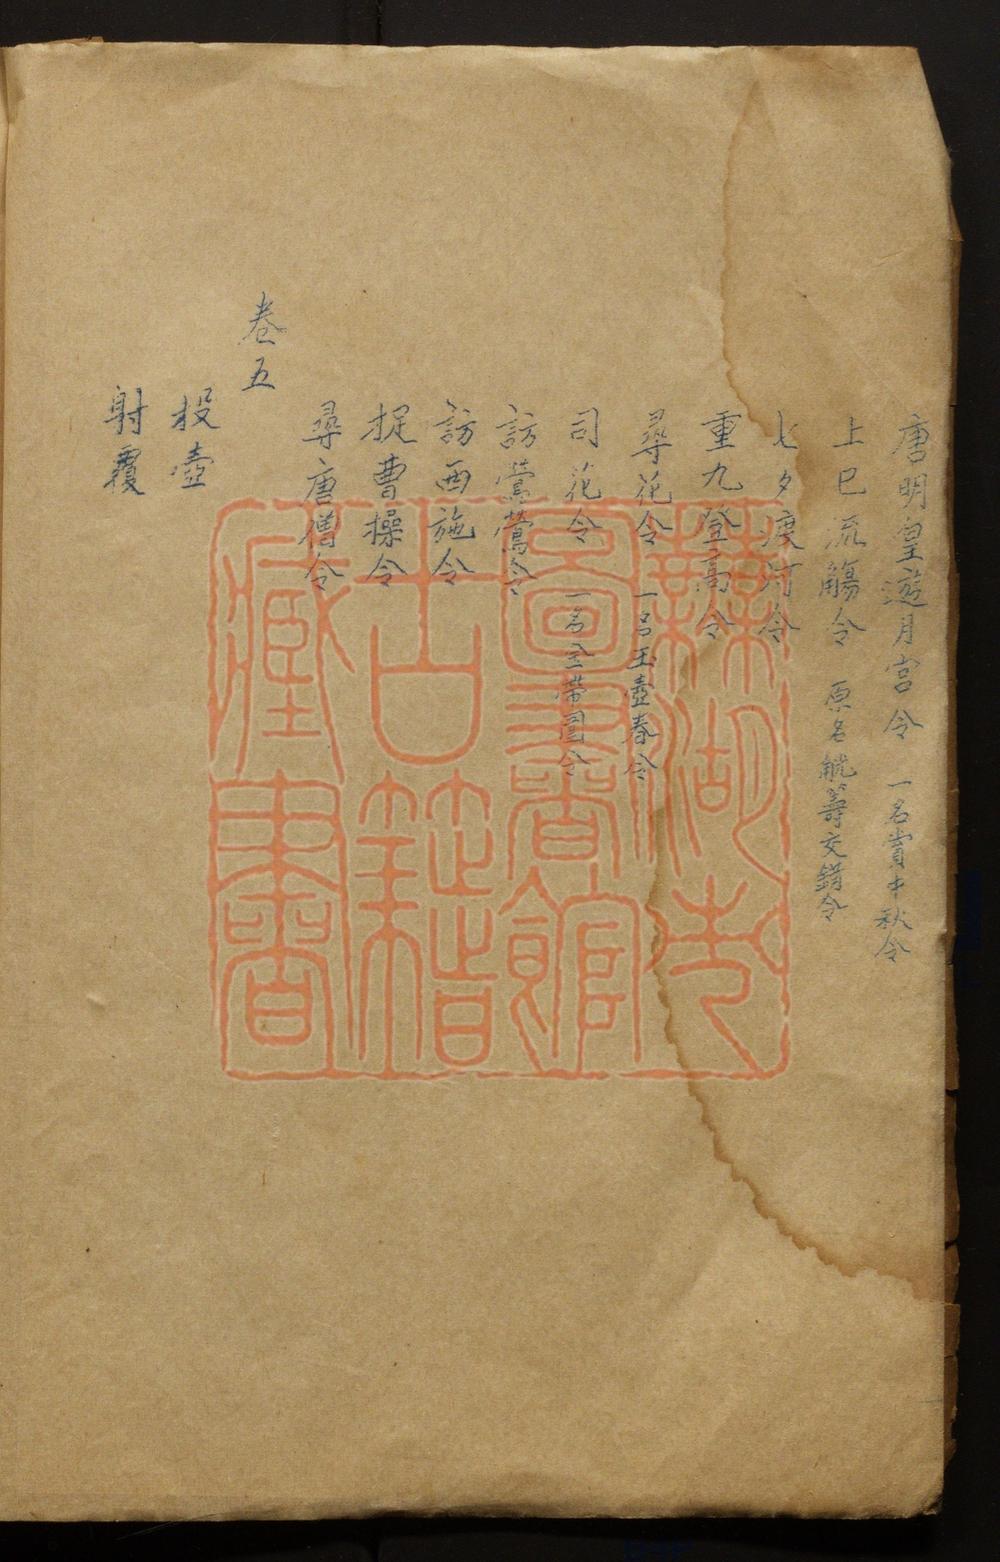 唐明皇遊月宮令 一名賞中秋令
上巳流觴令 原名觥籌交錯令
七夕渡河令
重九登高令
尋花令 一名玉壺春令
司花令 一名玉帶圍令
訪鶯鶯令
訪西施令
捉曹操令
尋唐僧令
卷五
投壺
射覆
蕪湖市
圖書館
古籍
藏書